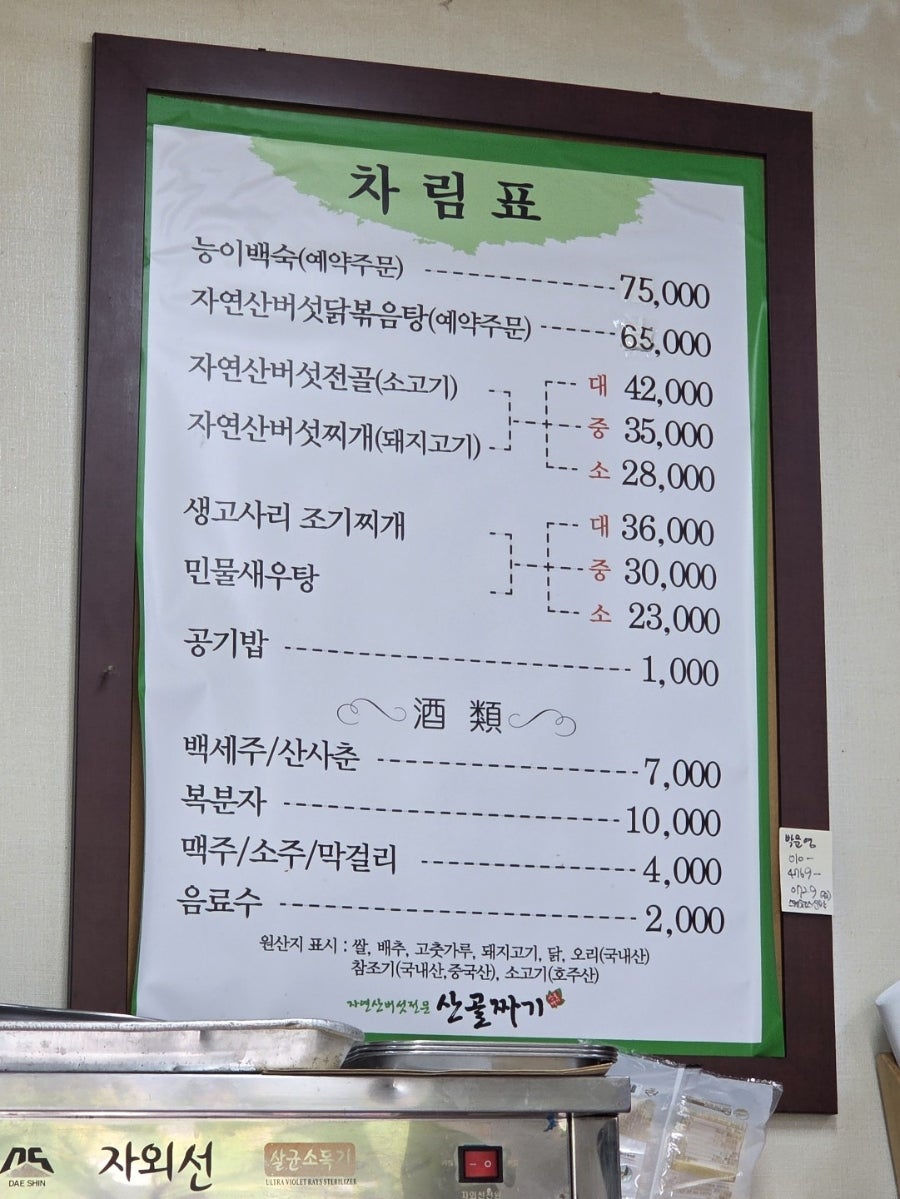 차림표
능이백숙(예약주문) 75,000
자연산버섯닭볶음탕(예약주문) 65,000
자연산버섯전골(소고기) 대 42,000
중 35,000
자연산버섯찌개(돼지고기)
소 28,000
생고사리 조기찌개 대 36,000
중 30,000
민물새우탕
소 23,000
공기밥 1,000
酒類
백세주/산사춘 7,000
복분자 10,000
맥주/소주/막걸리 4,000
음료수 2,000
원산지 표시 : 쌀, 배추, 고춧가루, 돼지고기, 닭, 오리(국내산)
참조기(국내산,중국산), 소고기(호주산)
자연산버섯전문 산골짜기
010-
4769-
0729
DAE SHIN
자외선
살균소독기
ULTRA VIOLET RAYS STERILIZER